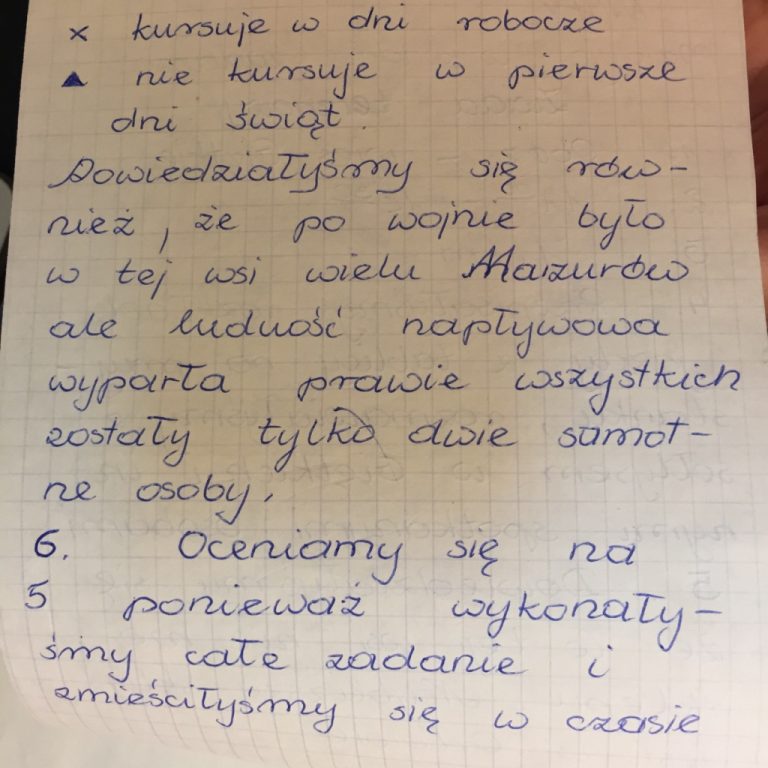 x kursuje w dni robocze
▲ nie kursuje w pierwsze
dni świąt.
Dowiedziałyśmy się rów-
nież, że po wojnie było
w tej wsi wielu Mazurów
ale ludność napływowa
wyparła prawie wszystkich
zostały tylko dwie samot-
ne osoby.
6. Oceniamy się na
5 ponieważ wykonały-
śmy całe zadanie i
zmieściłyśmy się w czasie